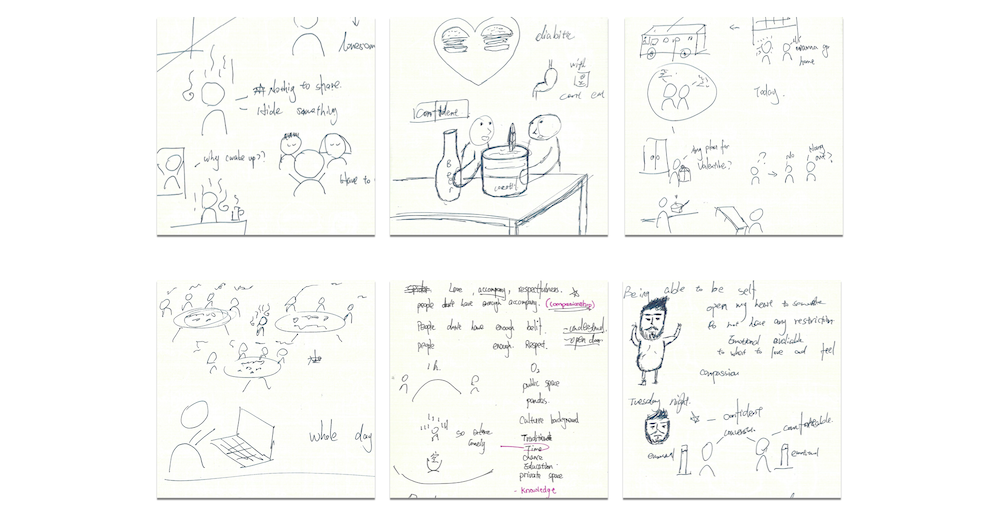 Nothig to share.
Hide something
why (wake up??
Have to
diabite
with
cannt eat
Confident
wanna go
home
Today.
Any plan for
Valentine?
??
No
Hang
out?
whole day
Love, accompany, respectfulness.
people don't have enough accompany. (companionship)
People don't have enough belif. - understand.
- open door
people enough Respect.
1h.
O2
public space
Culture background
so extreme
lonely
Traditional
Time
chance
Education
private space
- Knowledge
Being able to be self
open my heart to someone
Do not have any restriction
Emotional available
to want to love and feel
compassion
Tuesday night.
confident
comfortable.
emotional